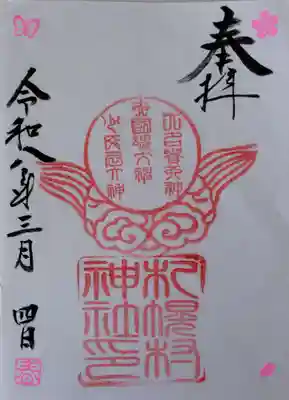 奉拝
大己貴大神
大國魂大神
少彦名大神
札幌村
神社印
令和八年三月 四日